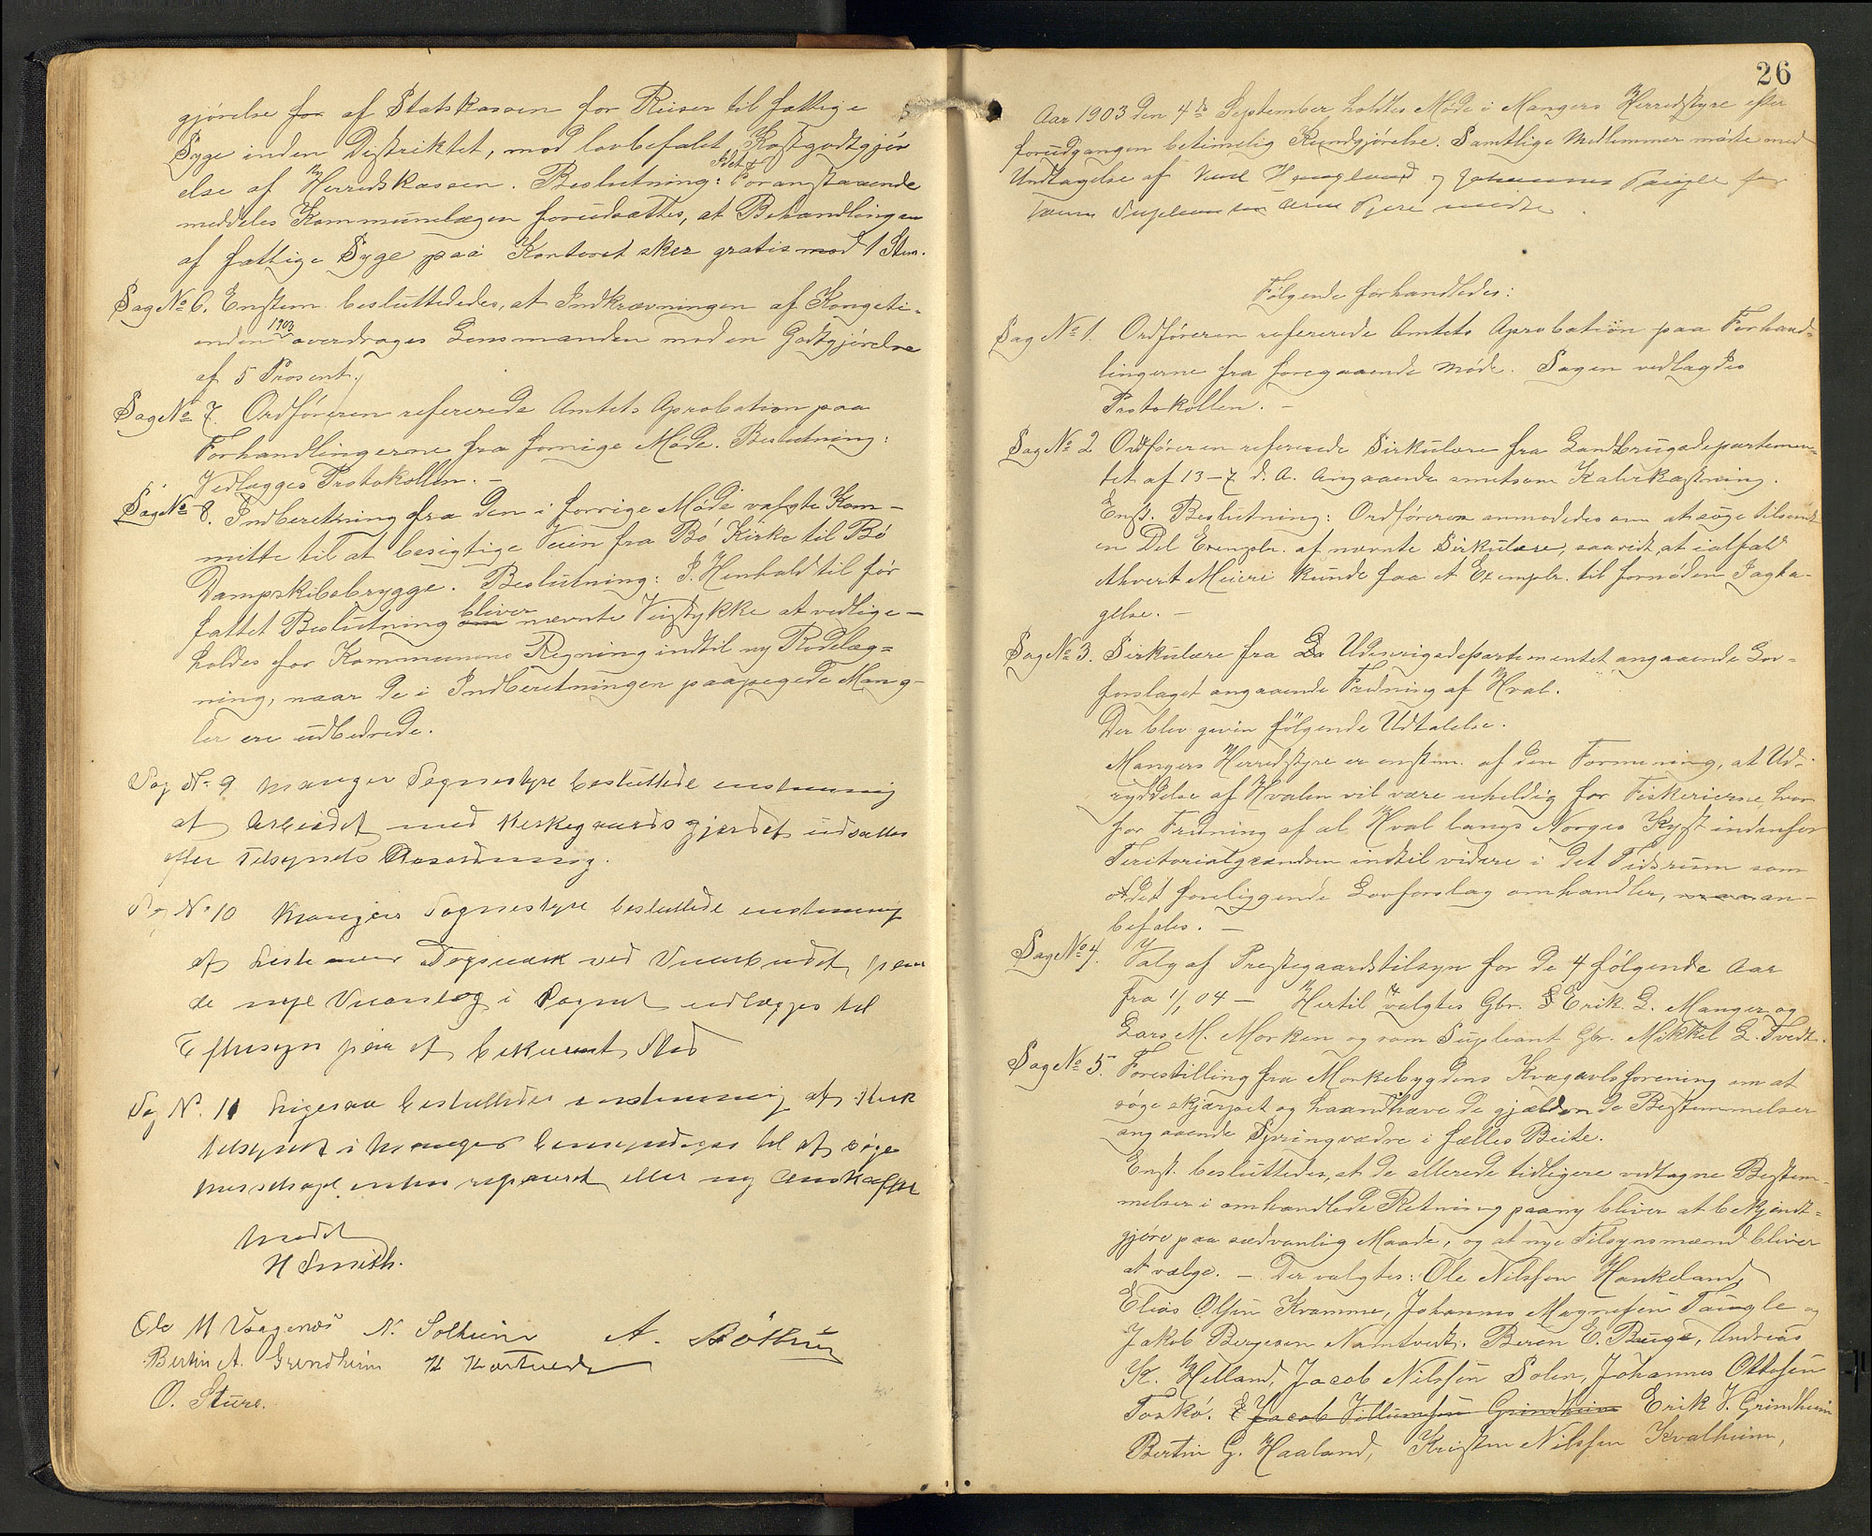 gjørelse for af Statskassen for Reiser til fattige
Syge inden Distriktet, mod lovbefalet Kostgodtgjør
else af Herredskassen. Beslutning: Foranstaaende
meddeles Kommunelægen forudsættes, at Behandlingen
af fattige Syge paa Kontoret sker gratis mod 1 Stem.
Sag No 6. Enstem. besluttededes, at Indkrævningen af Kongeti-
enden 1903 overdrages Lensmanden mod en Godtgjørelse
af 5 Prosent.
Sag No 7. Ordføreren refererede Amtets Aprobation paa
Forhandlingerne fra forrige Møde. Beslutning:
Vedlægges Protokollen. –
Sag No 8. Indberetning fra den i forrige Møde valgte Kom-
mitte til at besigtige Veien fra Bø Kirke til Bø
Dampskibsbrygge. Beslutning: I Henhold til før
fattet Beslutning bliver nævnte Veistykke at vedlige-
holdes for Kommunens Regning indtil ny Rodelæg=
ning, naar de i Indberetningen paapegede Mang-
ler ere udbedrede.
Sag No 9 Manger Sognestyre besluttede enstemmig
at Arbeidet med Kirkegaardsgjerdet udsættes
efter Tilsynets
Sag No 10 Mangers Sognestyre besluttede enstemmig
at Liste over Dagsværk ved Veiarbeidet paa
de nye Veianlæg i Sognet udlægges til
Eftersyn paa et bekvemt Sted
Sag No. 11 Ligesaa besluttedes enstemmig at Kirke
tilsynet i Manger bemyndiges til at søge
Messehagel enten reparert eller ny Anskaffet
Mødet
H Smith.
Ole M Vaagenæs N. Solheim A. Røttun
Bertin A. Grindheim H Hartvedt
O. Sture.
26
Aar 1903 den 4de September holdtes Møde i Mangers Herredstyre efter
forudgangen betimelig Kundgjørelse. Samtlige Medlemmer mødte med
Undtagelse af Haugland og Johannes Taugle for
Følgende forhandledes:
Sag No 1. Ordføreren refererede Amtets Aprobation paa Forhand=
lingerne fra foregaaende Møde. Sagen vedlagdes
Protokollen. –
Sag No 2 Ordføreren refererede Sirkulære fra Landbrugsdepartemen-
tet af 13-7 d. A. angaaende smitsom Kalvkastning.
Enst. Beslutning: Ordføreren anmodedes om at søge tilsendt
en Del Exemplr. af nævnte Sirkulære, saavidt at ialfald
ethvert Meieri kunde faa et Exemplr. til fornøden Iagtta-
gelse. –
Sag No 3. Sirkulære fra Udenrigsdepartementet angaaende Lov-
forslaget angaaende Fredning af Hval.
Der blev given følgende Udtalelse.
Mangers Herredstyre er enstem. af den Formening, at Ud-
ryddelse af Hvalen vil være uheldig for Fiskerierne, hvor
for Fredning af al Hval langs Norges Kyst indenfor
Teritorialgrændsen indtil videre i det Tidsrum som
det foreliggende Lovforslag omhandler, an-
befales. –
Sag No 4. Valg af Prestegaardstilsyn for de 4 følgende Aar
fra 1/1 04 – Hertil valgtes Gbr. Erik L. Manger og
Lars M. Morken og som Supleant Gbr. Mikkel L. Tvedt.
Sag No 5. Forestilling fra Morkebygdens Kvægavlsforening om at
søge skjærpet og haandhæve de gjældende Bestemmelser
angaaende Springvædre i fælles Beite.
Enst. besluttedes, at de allerede tidligere vedtagne Bestem-
melser i omhandlede Retning paany bliver at bekjendt-
gjøre paa sædvanlig Maade, og at nye Tilsynsmænd bliver
at vælge. – Der valgtes: Ole Nilssøn Hankeland,
Elias Olsen Kvamme, Johannes Magnesen Taugle og
Jakob Børgesen Namtvedt. Beren E. Berge, Andreas
K. Helland, Jacob Nilssøn Solem, Johannes Ottesen
Toskø. E Jacob Villumsen Grindheim Erik V. Grindheim
Bertin G. Haaland, Kristen Nilssen Kvalheim,